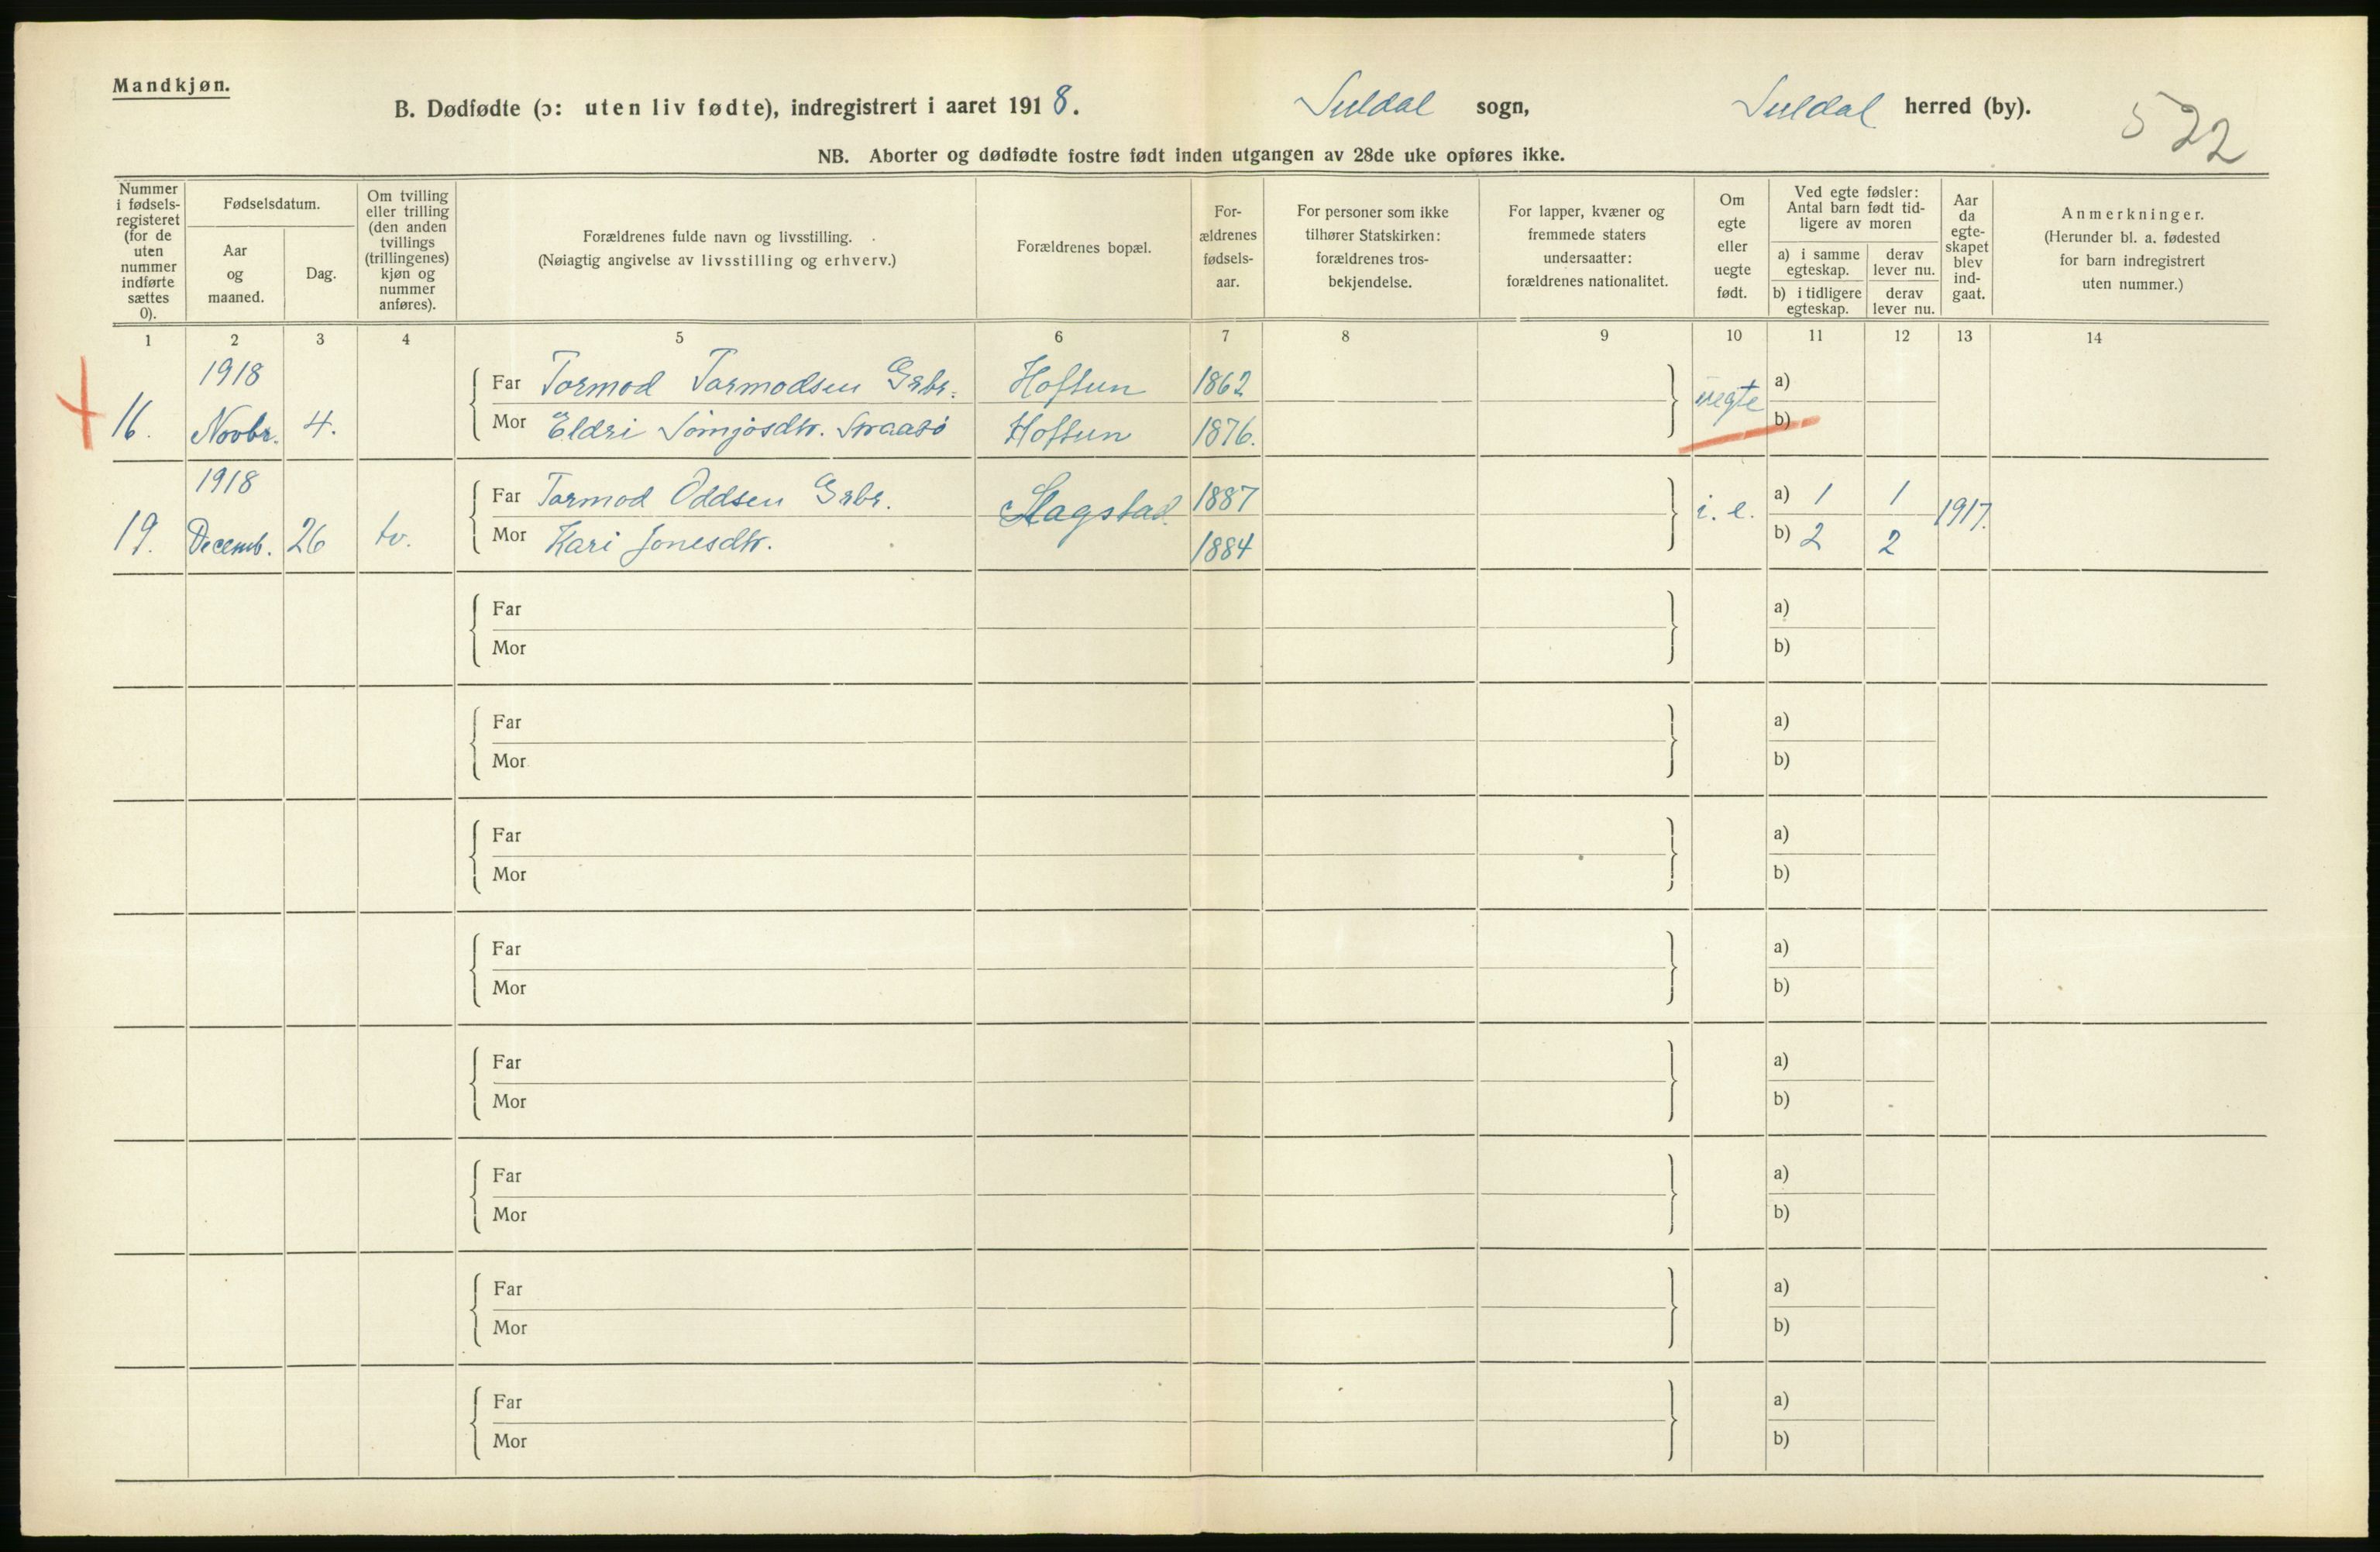 Mandkjøn.
B. Dødfødte (ɔ: uten liv fødte), indregistrert i aaret 1918. Suldal sogn, Suldal herred (by).
522
NB. Aborter og dødfødte fostre født inden utgangen av 28de uke opføres ikke.
Nummer i fødsels-registeret (for de uten nummer indførte sættes 0).
Fødselsdatum.
Aar og maaned.
Dag.
Om tvilling eller trilling (den anden tvillings (trillingenes) kjøn og nummer anføres).
Forældrenes fulde navn og livsstilling.
(Nøiagtig angivelse av livsstilling og erhverv.)
Forældrenes bopæl.
For-ældrenes fødsels-aar.
For personer som ikke tilhører Statskirken: forældrenes tros-bekjendelse.
For lapper, kvæner og fremmede staters undersaatter: forældrenes nationalitet.
Om egte eller uegte født.
Ved egte fødsler: Antal barn født tid-ligere av moren
a) i samme egteskap.
derav lever nu.
b) i tidligere egteskap.
derav lever nu.
Aar da egte-skapet blev ind-gaat.
Anmerkninger.
(Herunder bl. a. fødested for barn indregistrert uten nummer.)
1 2 3 4 5 6 7 8 9 10 11 12 13 14
1918 Far Tormod Tormodsen Grbr. Hoftun 1862 uegte a)
16. Novbr. 4. Mor Eldri Hoftun 1876. b)
1918 Far Tormod Oddsen Grbr. Slagstad 1887 i. e. a) 1 1 1917.
19. Decemb. 26 tv. Mor Kari Jonesdtr. 1884 b) 2 2
Far a)
Mor b)
Far a)
Mor b)
Far a)
Mor b)
Far a)
Mor b)
Far a)
Mor b)
Far a)
Mor b)
Far a)
Mor b)
Far a)
Mor b)